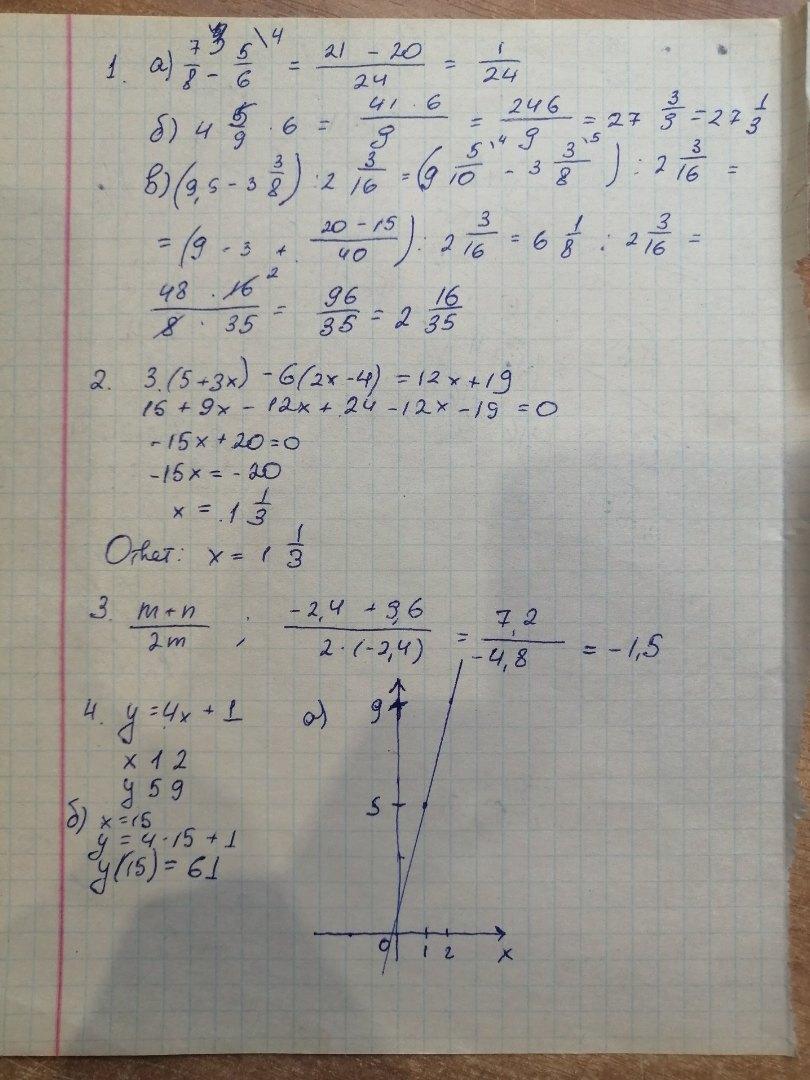 1. а) 7/8 \3 - 5/6 \4 = (21 - 20)/24 = 1/24
б) 4 5/9 · 6 = (41 · 6)/9 = 246/9 = 27 3/3 = 27 1/3
в) (9,5 - 3 3/8) : 2 3/16 = (9 5/10 \4 - 3 3/8 \5) : 2 3/16 =
= (9 - 3 + (20 - 15)/40) : 2 3/16 = 6 1/8 : 2 3/16 =
(48 · 16 2)/(8 · 35) = 96/35 = 2 16/35
2. 3.(5+3x) - 6(2x-4) = 12x+19
15 + 9x - 12x + 24 - 12x - 19 = 0
-15x + 20 = 0
-15x = -20
x = 1 1/3
Ответ: x = 1 1/3
3. (m+n)/2m ; (-2,4 + 9,6)/(2·(-2,4)) = 7,2/-4,8 = -1,5
4. y = 4x + 1 а)
x 1 2
y 5 9
б) x = 15
y = 4·15 + 1
y(15) = 61
9
5
0 1 2 x